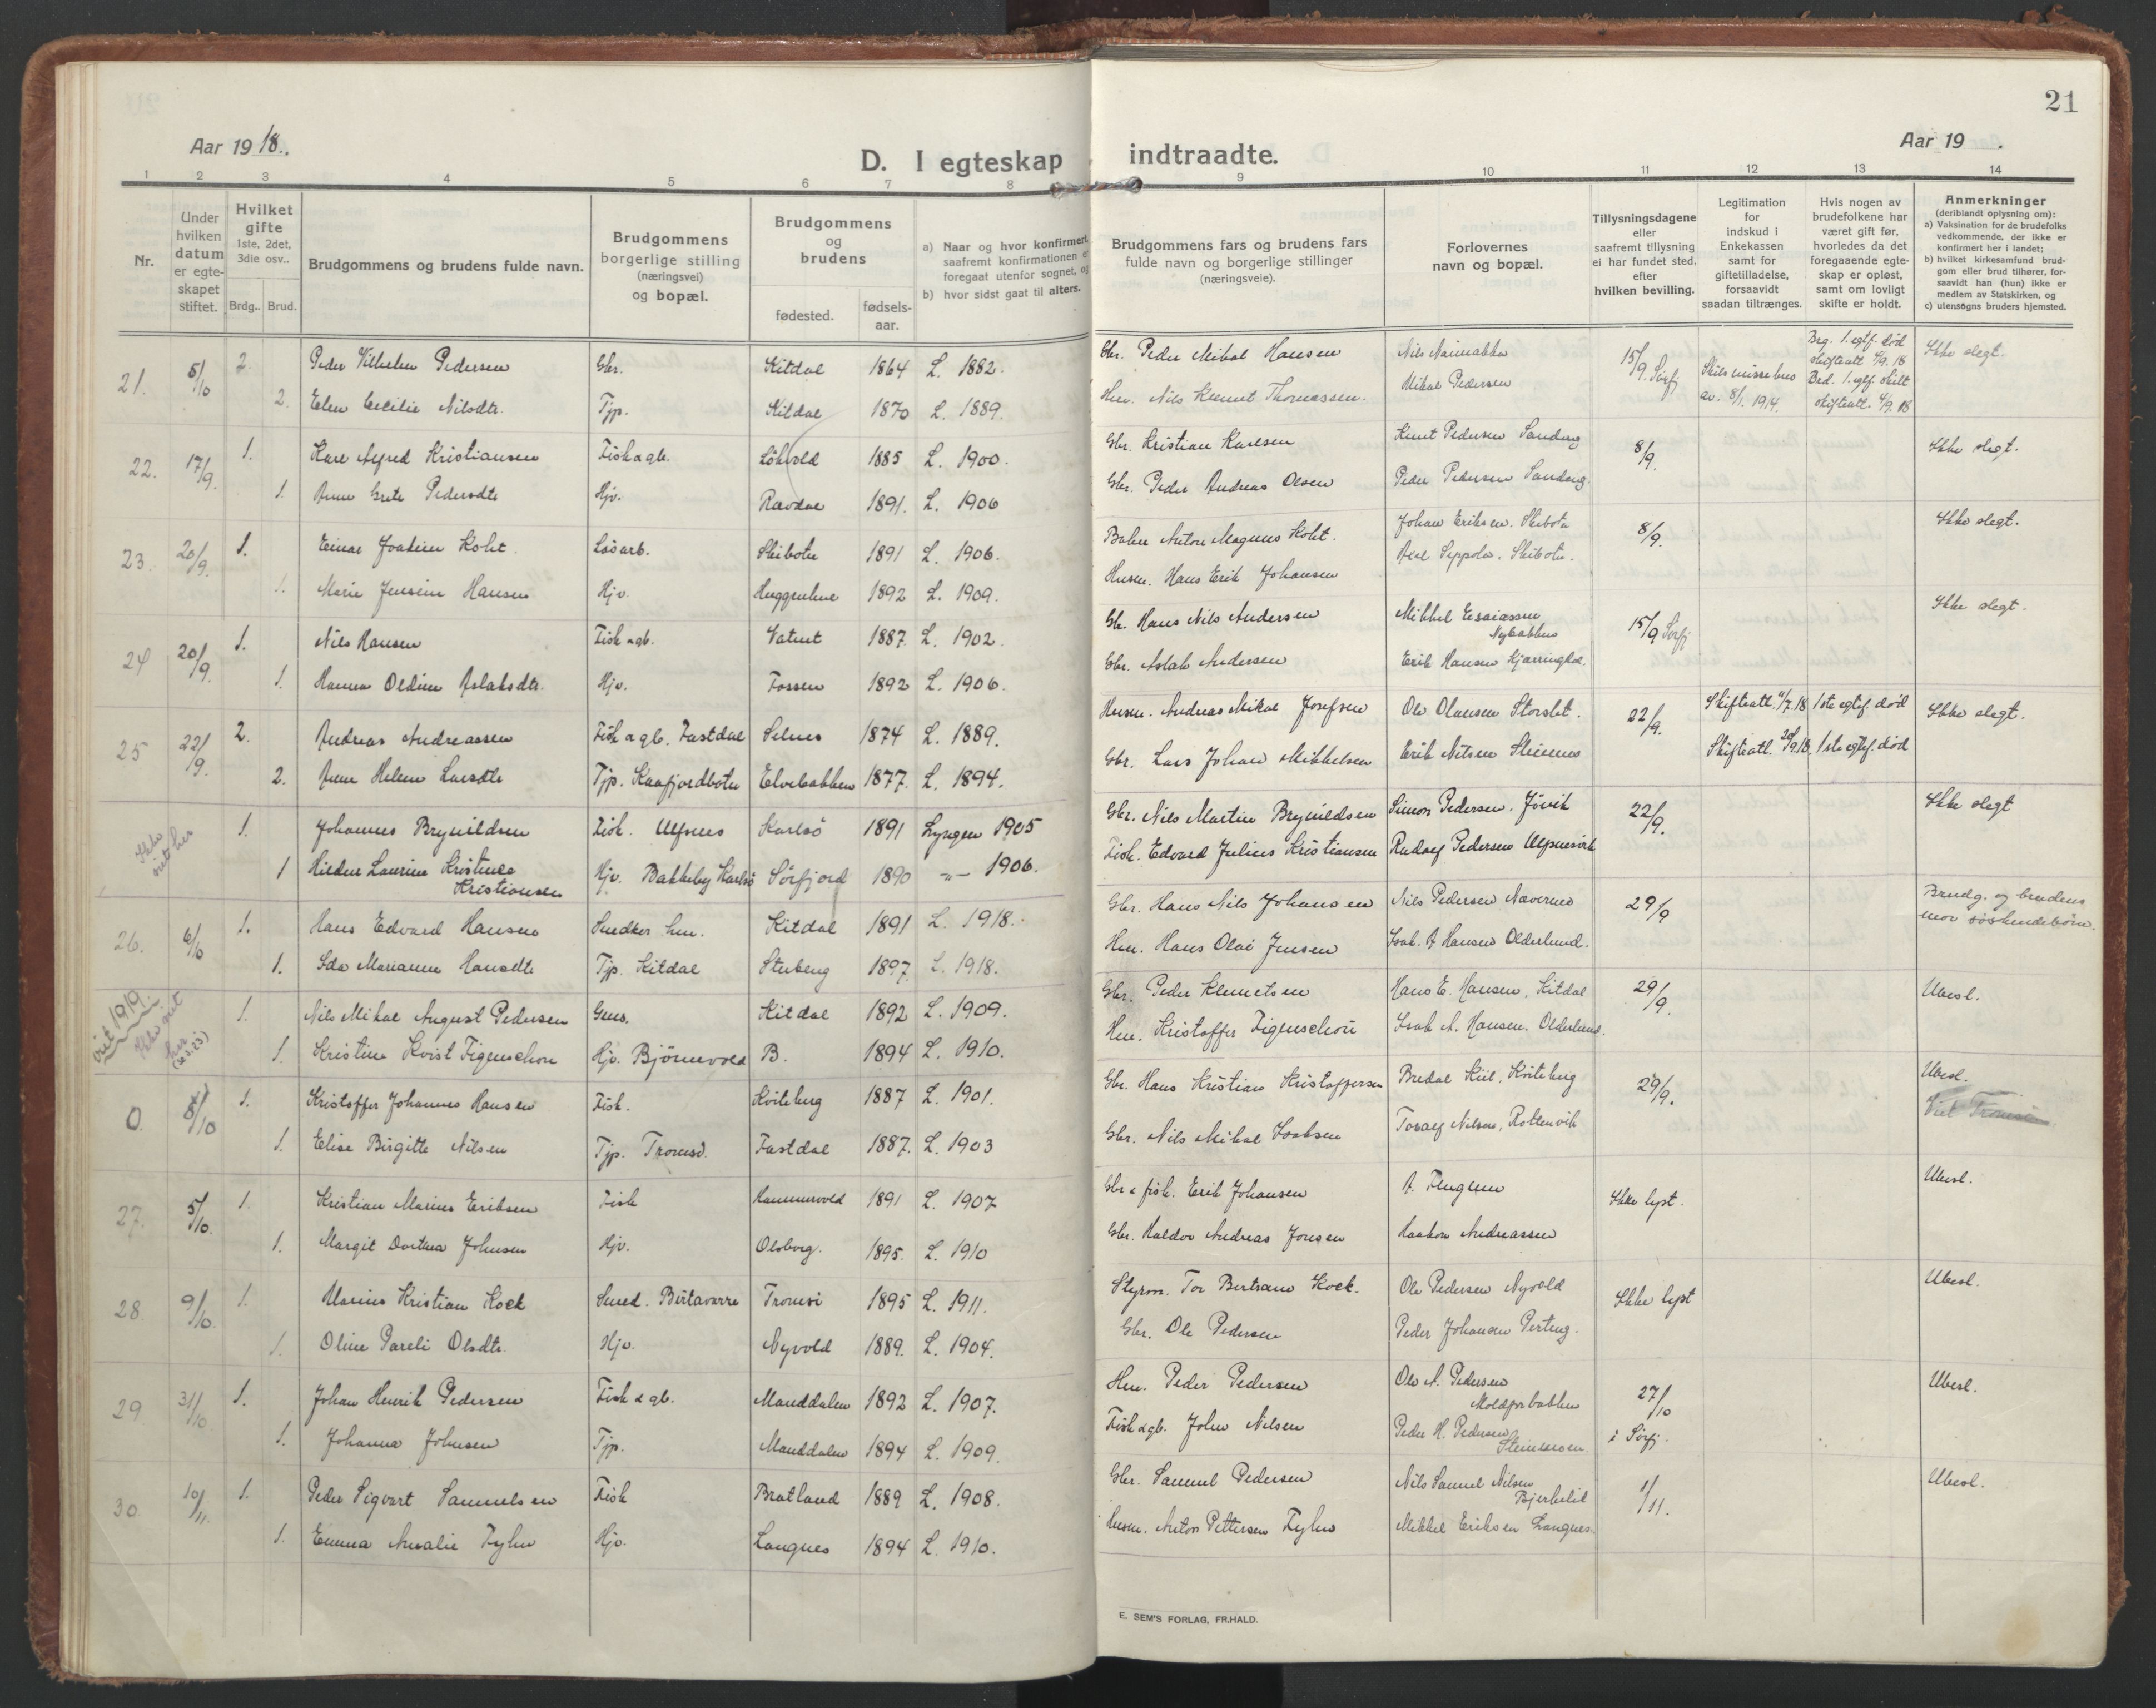 21
Aar 1918.
Aar 19 .
D. I egteskap indtraadte.
1 2 3 4 5 6 7 8 9 10 11 12 13 14
Nr.
Under hvilken datum er egteskapet stiftet.
Hvilket gifte 1ste, 2det, 3die osv..
Brdg.. Brud.
Brudgommens og brudens fulde navn.
Brudgommens borgerlige stilling (næringsvei) og bopæl.
Brudgommens og brudens
fødested.
fødselsaar.
a) Naar og hvor konfirmert saafremt konfirmationen er foregaat utenfor sognet, og
b) hvor sidst gaat til alters.
Brudgommens fars og brudens fars fulde navn og borgerlige stillinger (næringsveie).
Forlovernes navn og bopæl.
Tillysningsdagene eller saafremt tillysning ei har fundet sted. efter hvilken bevilling.
Legitimation for indskud i Enkekassen samt for giftetilladelse, forsaavidt saadan tiltrænges.
Hvis nogen av brudefolkene har været gift før, hvorledes da det foregaaende egteskap er opløst, samt om lovligt skifte er holdt.
Anmerkninger
(deriblandt oplysning om):
a) Vaksination for de brudefolks vedkommende, der ikke er konfirmert her i landet;
b) hvilket kirkesamfund brudgom eller brud tilhører, forsaavidt han (hun) ikke er medlem av Statskirken, og
c) utensogns bruders hjemsted.
21. 5/10 2. Peder Vilhelm Pedersen Gbr. Kitdal 1864 L. 1882. Gbr. Peder Mikal Hansen Nils 15/9 Sørfj Skilsmissebev av. 8/1. 1914. Brg. 1. egtf. død skifteatt 4/9. 18 Ikke slegt.
2. Elen Cecilie Nilsdtr. Tjp. Kitdal 1870 L. 1889. Hm. Nils Klemet Thomassen. Mikal Pedersen Brd. 1. egtf. skilt skifteatt. 4/9. 18
22. 17/9. 1. Karl Alfred Kristiansen Fisk & gb. Løkvold 1885 L. 1900. Gbr. Kristian Karlsen Knut Pedersen Sandeng 8/9. Ikke slegt.
1. Anne Grete Pedersdtr Hjv. Rovdal 1891. L. 1906 Gbr. Peder Andreas Olsen Peder Pedersen Sandeng.
23. 20/9. 1. Einar Joakim Koht. Løsarb. Skibotn 1891 L. 1906. Anton Magnus Koht. Johan Eriksen. Skibotn 8/9. Ikke slegt.
1. Marie Jensine Hansen Hjv. 1892 L. 1909. Husm. Hans Erik Johansen Axel Seppola. Skibotn.
24 20/9. 1. Nils Hansen Fisk & gb. Vatnet 1887. L. 1902. Gb. Hans Nils Andersen Mikkel Esaiassen Nybakken 15/9 Sørfj Ikke slegt.
1. Hanna Oldine Aslaksdtr. Hjv. Fossen 1892 L. 1906. Gbr. Aslak Andersen Erik Hansen
25 22/9. 2. Andreas Andreassen Fisk & gb. Fastdal Selnes 1874 L. 1889. Husm. Andreas Mikal Josefsen Ole Olausen Storslet. 22/9. Skifteatt. 4/7. 18 1ste egtef. død Ikke slegt.
2. Anne Helene Larsdtr Tjp. Kaafjordbotn Elvebakken 1877. L. 1894. Gbr. Lars Johan Mikkelsen Erik Nilsen Steinnes Skifteatt. 20/9. 18, 1ste egtef. død
Ikke viet her 1. Johannes Brynildsen Fisk. Ulfsnes Karlsø 1891 Lyngen 1905 Gbr. Nils Martin Brynildsen Simon Pedersen. Jövik 22/9. Ikke slegt
1 Hildur Laurine Kristine Kristiansen Hjv. Bakkeby Karlsø Sörfjord 1890 -"- 1906. Fisk. Edvard Julius Kristiansen Rudolf Pedersen Ulfsnesvik
26. 6/10 1. Hans Edvard Hansen Snedker hm. Kitdal 1891 L. 1918. Gbr. Hans Nils Johansen Nils Pedersen Navernes 29/9 Brudg. og brudens mor søskendebørn.
1. Ida Marianne Hansdtr Tjp. Kitdal Stubeng 1897. L. 1918. Hm. Hans Olai Jensen Isak. A Hansen Olderlund.
viet 1919. Ikke viet her (22.3.23) 1. Nils Mikal August Pedersen Kitdal 1892 L. 1909. Gbr. Peder Klemetsen Hans E. Hansen, Kitdal 29/9. Ubesl.
1. Kristine Kvist Figenschou Hjv. Björnevold B. 1894 L. 1910. Hm. Kristoffer Figenschou Isak A. Hansen. Olderlund.
0. /10 1. Kristoffer Johannes Hansen Fisk. Kviteberg 1887 L. 1901. Gbr. Hans Kristian Kristoffersen Bredal Kiil, Kviteberg 29/9. Ubesl.
1. Elise Birgitte Nilsen Tjp. Tromsø. Fastdal 1887. L. 1903 Gbr. Nils Mikal Isaksen Toralf Nilsen, Rottenvik Viet Tromsø
27. 5/10. 1. Kristian Marius Eriksen Fisk Hammervold 1891 L. 1907 Gbr & fisk. Erik Johansen A. Ikke lyst. Ubesl.
1. Margit Dortea Johnsen Hjv. Olsborg. 1895. L. 1910 Gbr. Haldor Andreas Jonsen Haakon Andreassen
28. 9/10. 1. Marius Kristian Kock Smed. Birtavarre Tromsø 1895 L. 1911. Styrm. Tor Bertram Kock. Ole Pedersen Nyvold Ikke lyst Ubesl.
1. Oline Pareli Olsdtr. Hjv. Nyvold 1889. L. 1904. Gbr. Ole Pedersen Peder Johansen
29 31/10 1. Johan Henrik Pedersen Fisk & gb. Manddalen 1892 L. 1907. Hm. Peder Pedersen Ole A. Pedersen 27/10 i Sörfj. Ubesl.
1. Johanna Johnsen Tjp. Manddalen 1894 L. 1909. Fisk & gb. John Nilsen Peder H. Pedersen Steinmoen.
30. 10/11. 1. Peder Sigvart Samuelsen Fisk Bratland 1889 L. 1908. Gbr. Samuel Pedersen Nils Samuel Nilsen 1/11. Ubesl.
1. Emma Amalie Fyhn Hjv. Langnes 1894 L. 1910. Husm. Anton Pettersen Fyhn Mikkel Eriksen Langnes.
E. SEM'S FORLAG, FR.HALD.